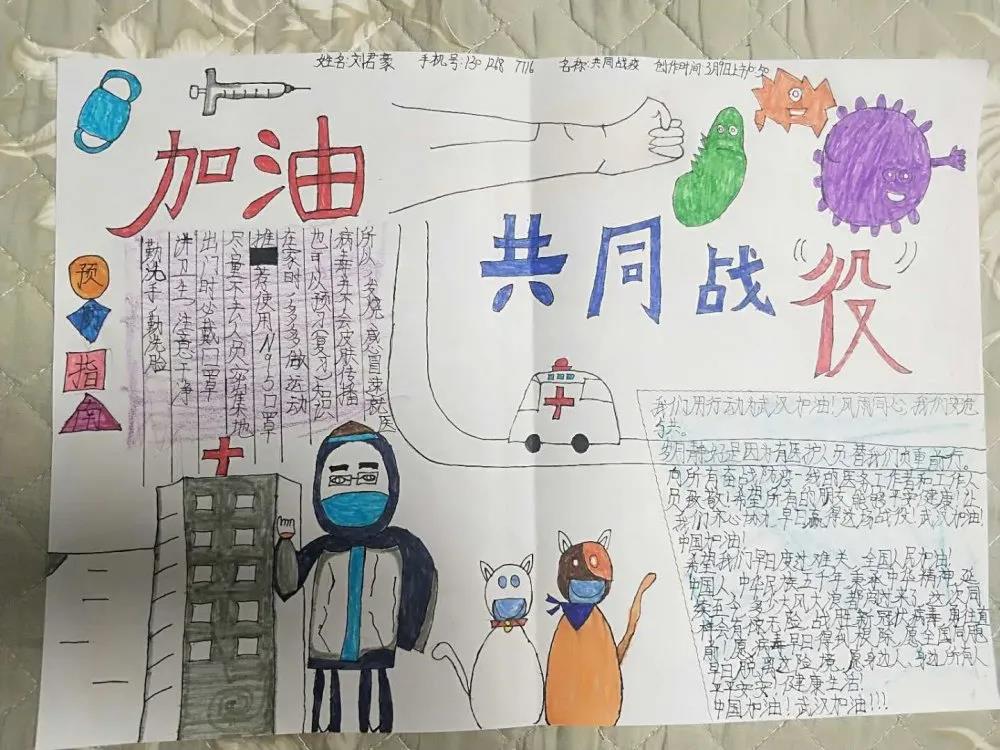 姓名:刘君豪 手机号:130 1268 7716 名称:共同战疫 创作时间:3月9日上午
加油
共同战“役”
预防指南
勤洗手勤洗脸
讲卫生 注意干净
出门时必戴口罩
尽量不去人员密集地
推荐使用N95口罩
在家时,多多做运动
也可以预习复习知识
病毒并不会皮肤传播
所以,发烧感冒速就医
我们用行动为武汉加油!风雨同心,我们
岁月静好是因为有医护人员替我们负重前行。
向所有奋战 的医务工作者和工作人
员致敬!希望所有的朋友能够平安健康!让
我们齐心协力早日赢得这场战役!武汉加油!
中国加油!
希望我们早日度过难关,全国人民加油!
中国人,中华民族五千年秉承中华精神,延
续至今,多少大风大浪都挺过来了,这次同
样会有惊无险,战胜新冠状病毒,勇往直
前!愿病毒早日得到根除,愿全国同胞
早日脱离危险境,愿身边人、身边所有人
平平安安!健康生活!
中国加油!武汉加油!!!